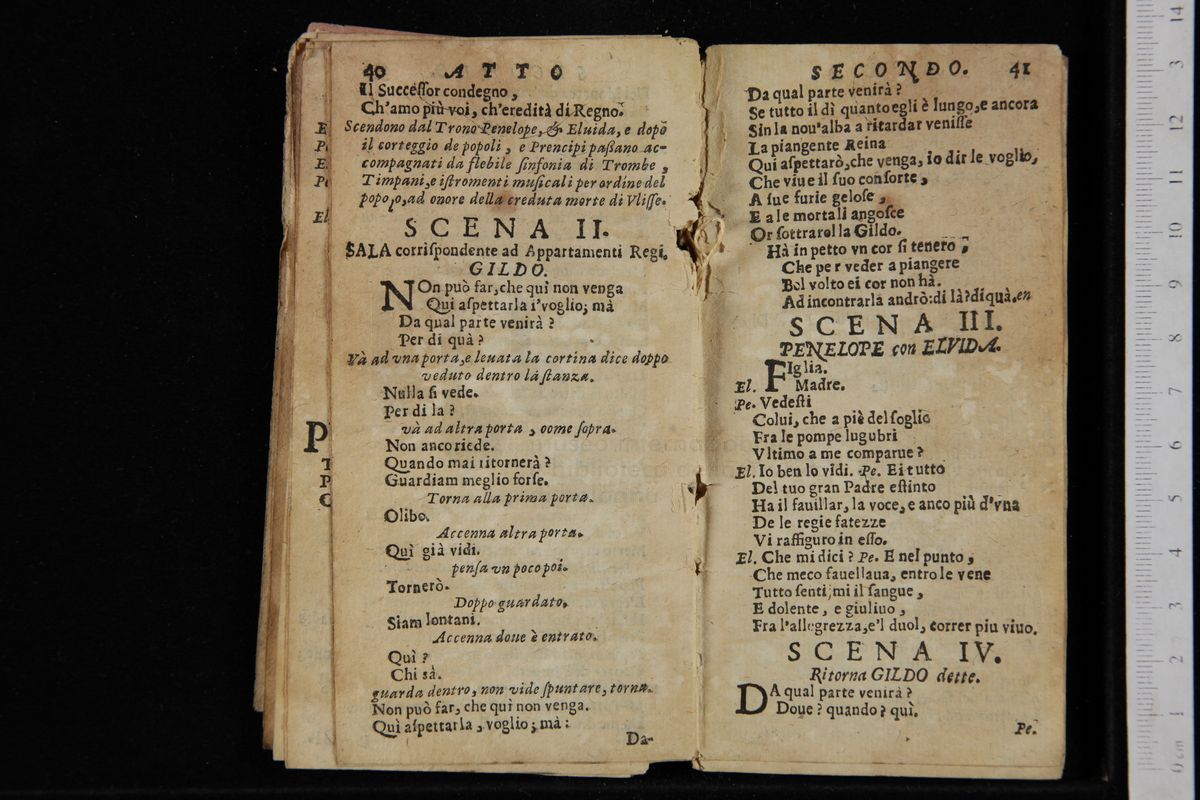 40 ATTO
Il Succeſſor condegno,
Ch'amo più voi, ch'eredità di Regno.
Scendono dal Trono Penelope, & Eluida, e dopò
il corteggio de popoli, e Prencipi paßano ac-
compagnati da flebile ſinfonia di Trombe,
Timpani, e iſtromenti muſicali per ordine del
popolo, ad onore della creduta morte di Vliſſe.
SCENA II.
SALA corriſpondente ad Appartamenti Regi.
GILDO.
NOn può far, che quì non venga
Qui aſpettarla i'voglio; mà
Da qual parte venirà?
Per di quà?
Và ad vna porta, e leuata la cortina dice doppo
veduto dentro la ſtanza.
Nulla ſi vede.
Per di la?
và ad altra porta, come ſopra.
Non anco riede.
Quando mai ritornerà?
Guardiam meglio forſe.
Torna alla prima porta.
Olibo.
Accenna altra porta.
Quì già vidi.
penſa vn poco poi.
Tornerò.
Doppo guardato.
Siam lontani.
Accenna doue è entrato.
Quì?
Chi sà.
guarda dentro, non vide ſpuntare, torna.
Non può far, che quì non venga.
Quì aſpettarla, voglio; mà:
Da-
SECONDO. 41
Da qual parte venirà?
Se tutto il dì quanto egli è lungo, e ancora
Sin la nou'alba a ritardar veniſſe
La piangente Reina
Qui aſpettarò, che venga, io dirle voglio,
Che viue il ſuo conſorte,
A ſue furie geloſe,
E a le mortali angoſce
Or ſottrarolla Gildo.
Hà in petto vn cor ſi tenero;
Che per veder a piangere
Bel volto ei cor non hà.
Ad incontrarla andrò: di là? di quà. en
SCENA III.
PENELOPE con ELVIDA.
FIglia.
El. Madre.
Pe. Vedeſti
Colui, che a piè del ſoglio
Fra le pompe lugubri
Vltimo a me comparue?
El. Io ben lo vidi. Pe. Ei tutto
Del tuo gran Padre eſtinto
Ha il fauillar, la voce, e anco più d'vna
De le regie fatezze
Vi raffiguro in eſſo.
El. Che mi dici? Pe. E nel punto,
Che meco fauellaua, entro le vene
Tutto ſentijmi il ſangue,
E dolente, e giuliuo,
Fra l'allegrezza, e'l duol, correr piu viuo.
SCENA IV.
Ritorna GILDO dette.
DA qual parte venirà?
Doue? quando? quì.
Pe.